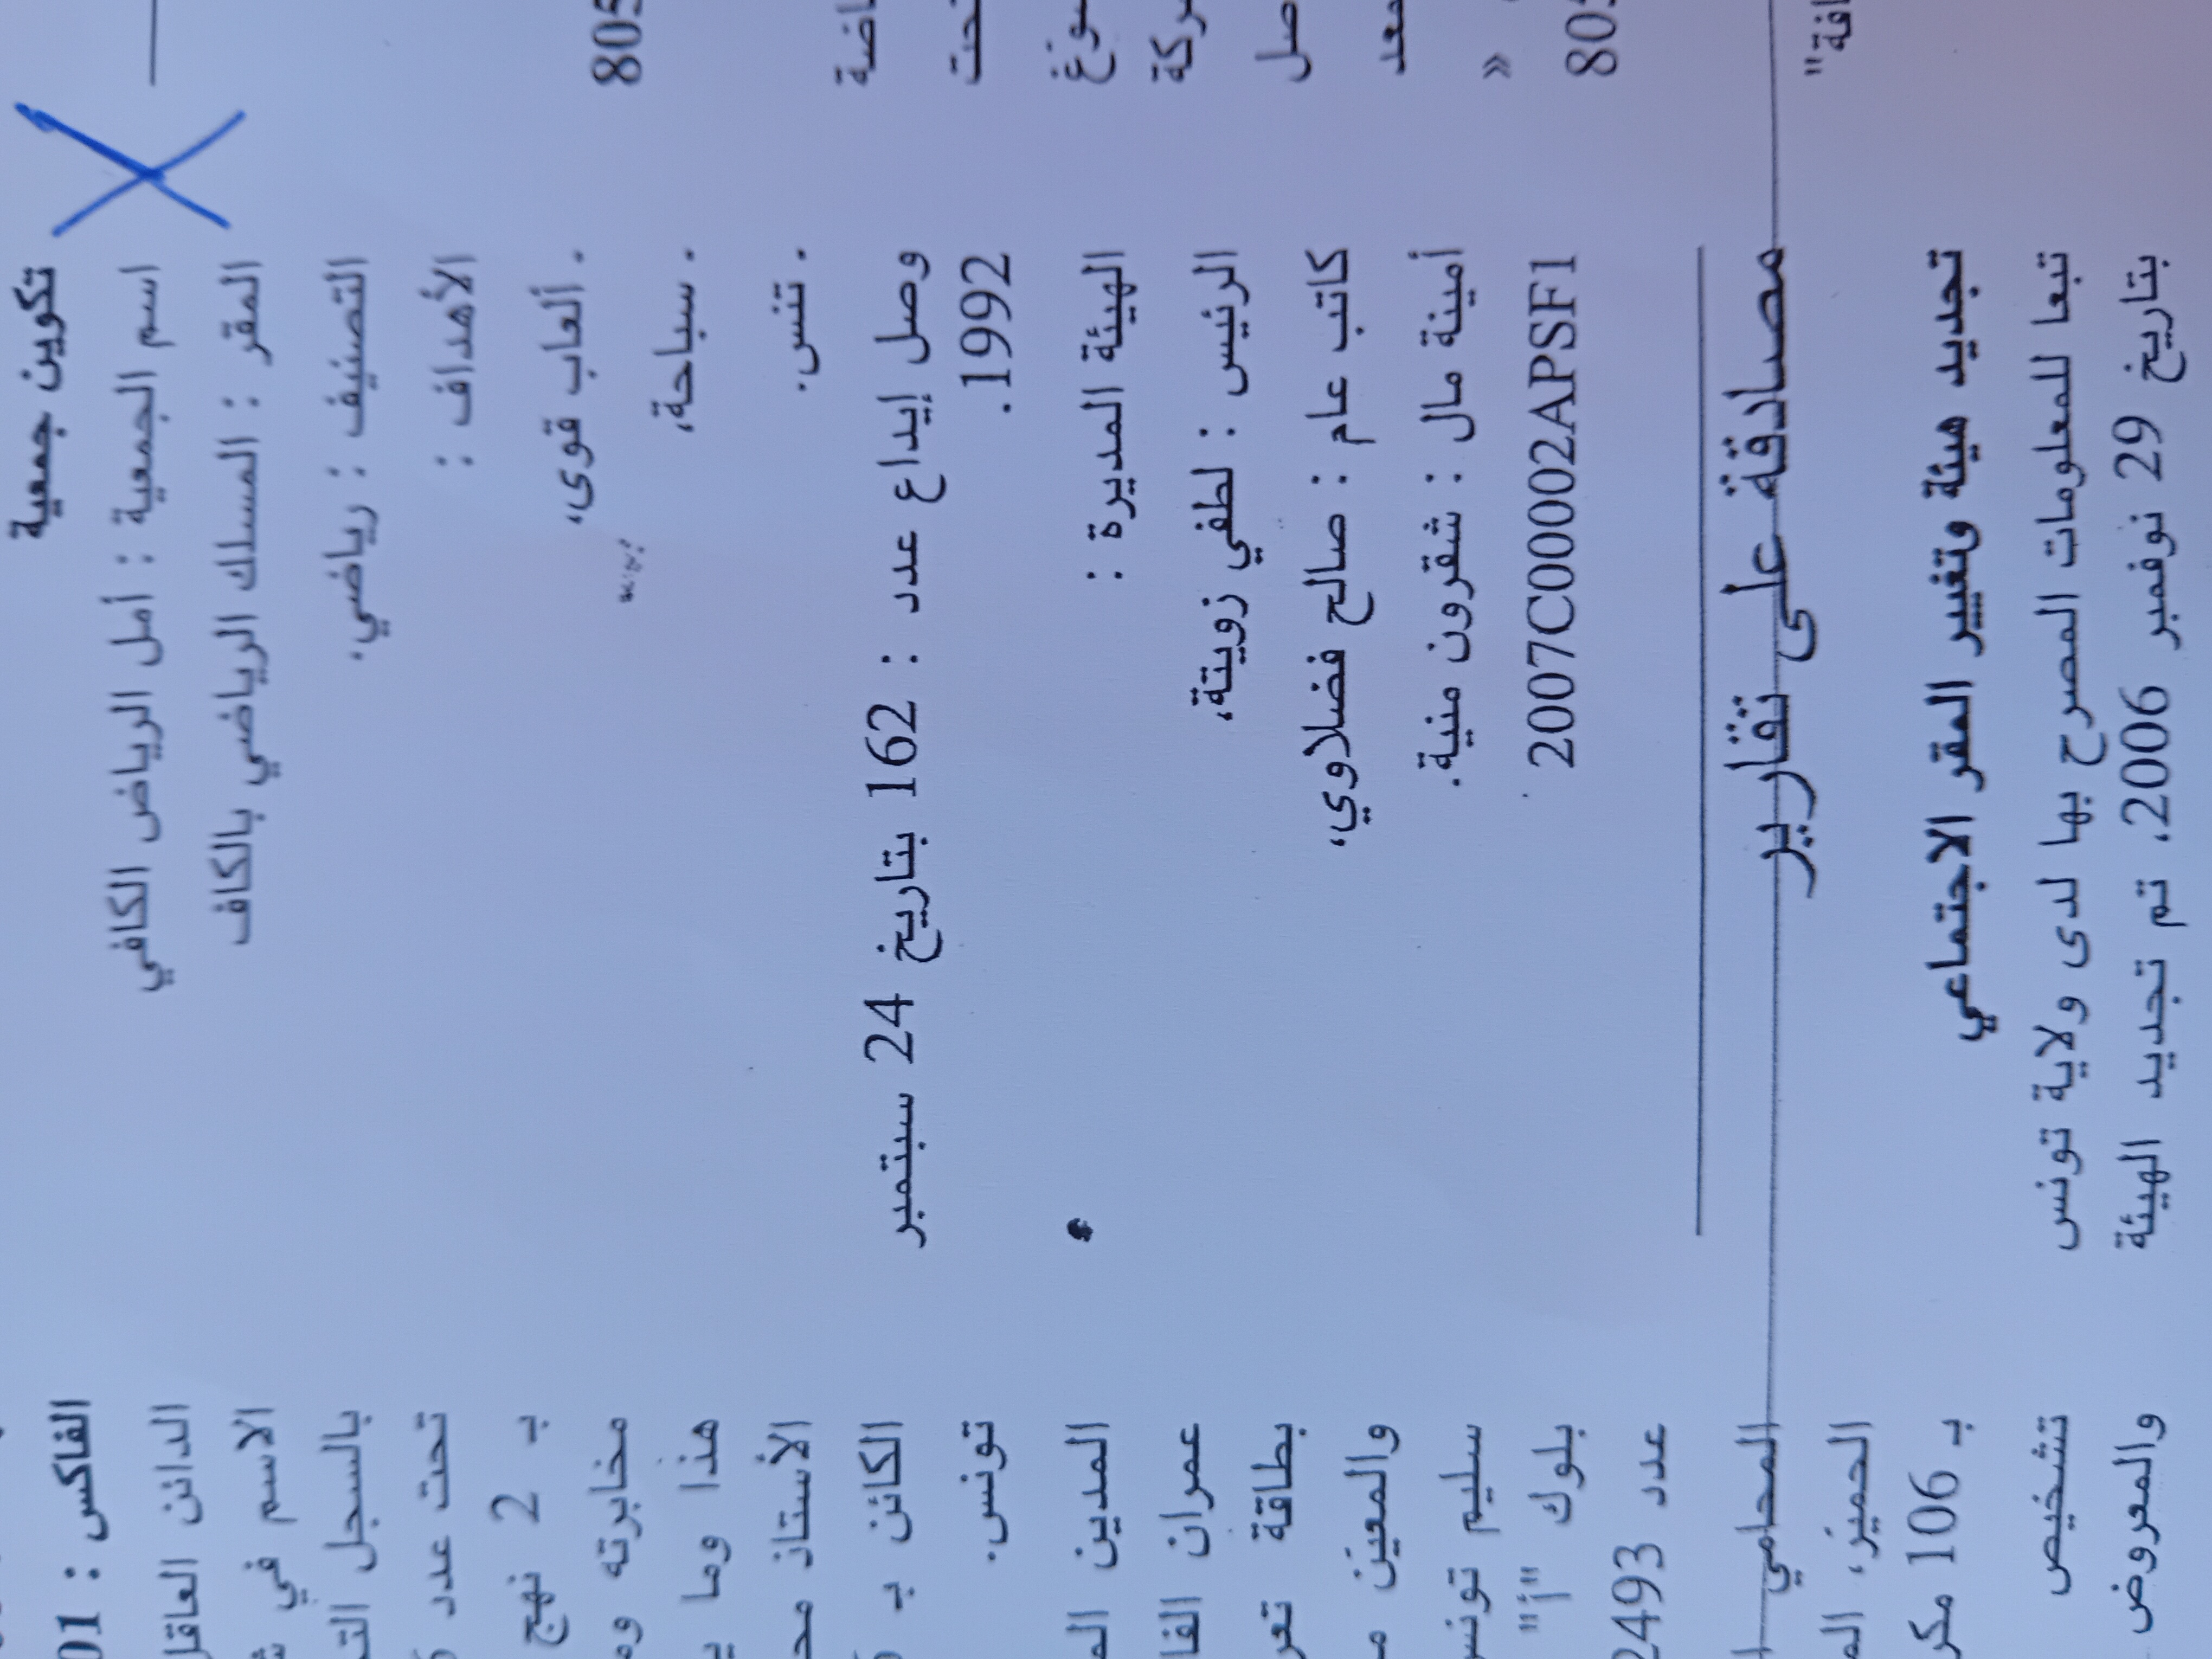 805
اضة
حت
سوغ
ركة
صل
معد
»
805
افة"
تكوين جمعية
اسم الجمعية : أمل الرياض الكافي
المقر : المسلك الرياضي بالكاف
التصنيف : رياضي.
الأهداف :
. ألعاب قوى،
. سباحة،
. تنس.
وصل إيداع عدد : 162 بتاريخ 24 سبتمبر
1992.
الهيئة المديرة :
الرئيس : لطفي زويتة،
كاتب عام : صالح فضلاوي،
أمينة مال : شقرون منية.
2007C00002APSF1
مصادقة على تقارير
تجديد هيئة وتغيير المقر الاجتماعي
تبعا للمعلومات المصرح بها لدى ولاية تونس
بتاريخ 29 نوفمبر 2006، تم تجديد الهيئة
الفاكس : 01
الدائن العاقل
الاسم في ش
بالسجل الت
تحت عدد
بـ 2 نهج
مخابرته وم
هذا وما ي
الأستاذ مح
الكائن بـ
تونس.
المدين الم
عمران الفا
بطاقة تعر
والمعين م
سليم تونس
بلوك "أ"
عدد 2493
المحامي ا
الحميّر، الم
بـ 106 مكر
تشخيص
والمعروض